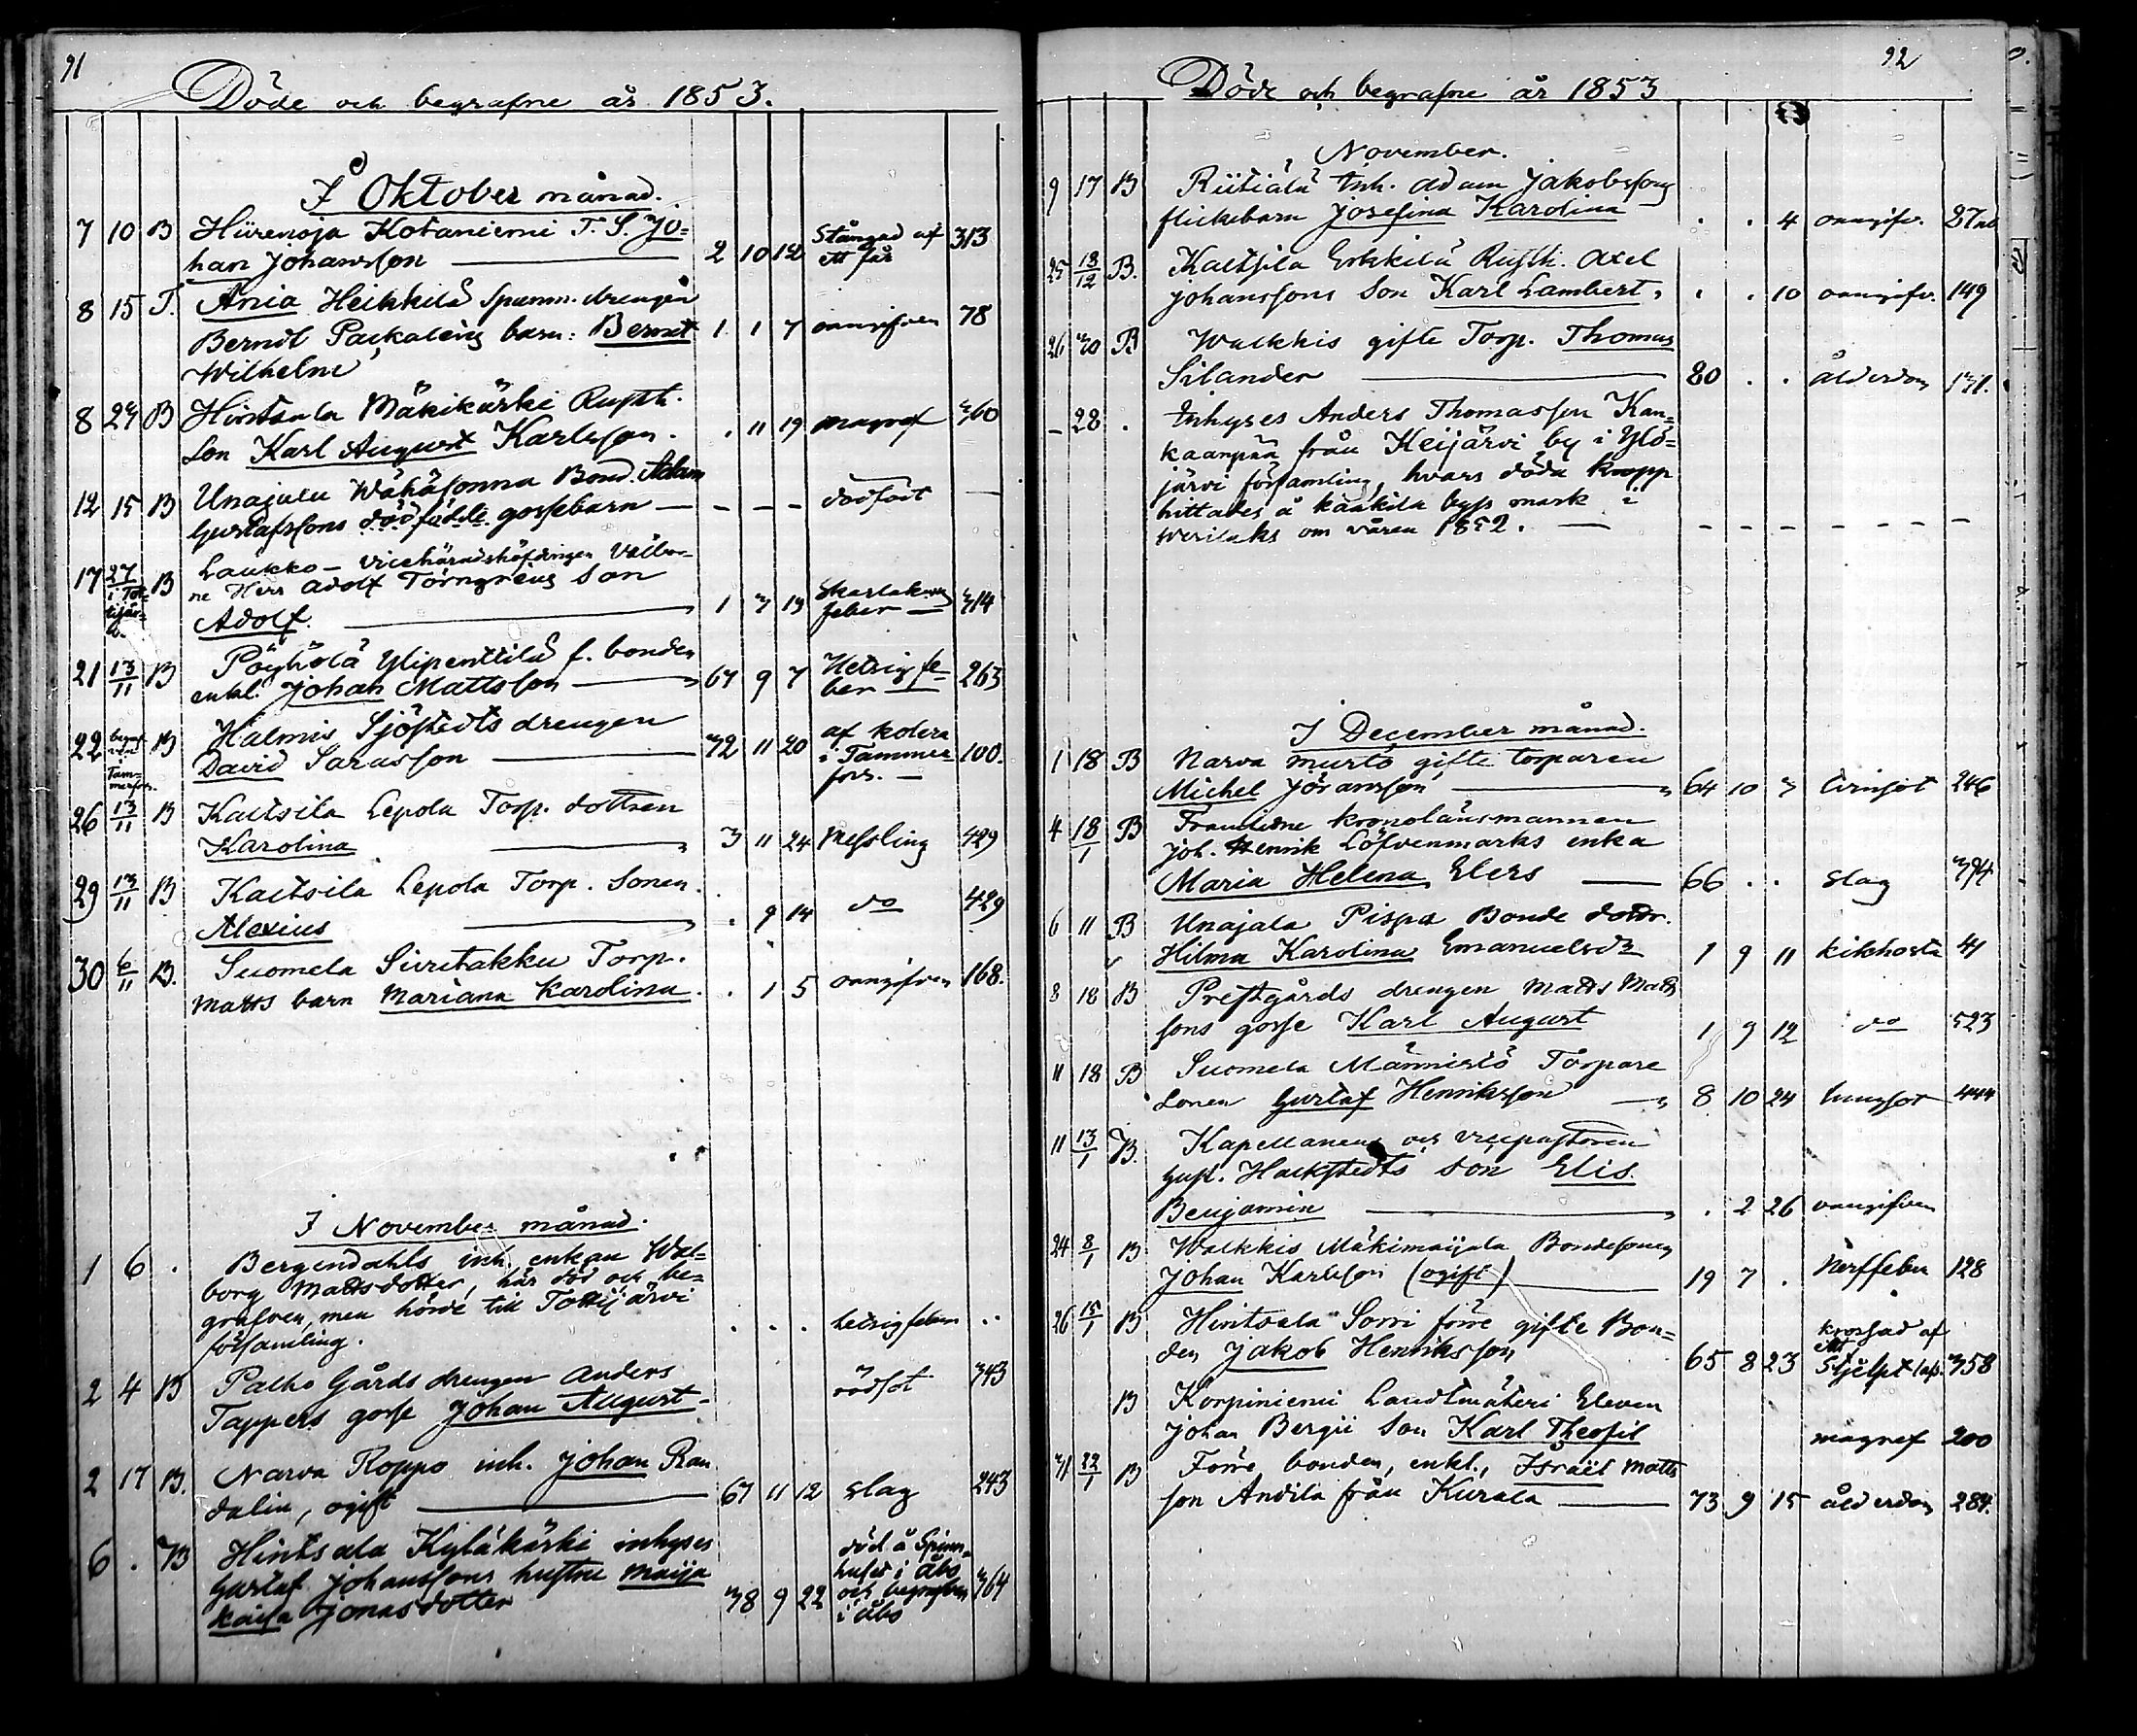 91
Döde och begrafne år 1853.
I Oktober månad.
7 10 B Hiirenoja Kotaniemi T. S. Jo=
han Johansson 2 10 12 Stångad af ett får 313
8 15 T. Ania Heikkilä Spanm. drengen
Berndt Packaléns barn: Bernt 1 1 7 oangifven 78
Wilhelm
8 23 B Hintsala Mäkikärki Rusth.
Son Karl August Karlsson. . 11 19 magref 360
12 15 B Unajala Wähäsonna Bond. Adam
Gustafssons dödfödde gossebarn — - - - dödfödt —
17 27 i Tot=tijär=vi B Laukko – vicehäradshöfdingen Välbor=
ne Herr Adolf Törngréns Son
Adolf. 1 3 13 Skarlakans feber — 314
21 13/11 B Pöyhölä Ylipenttilä f. bonden
enkl. Johan Mattsson 67 9 7 Hetsig fe=ber — 263
22 begraf-ven i Tam=merfors. B Halmis Sjöstedts drengen
David Sarasson 32 11 20 af kolera i Tammer fors. — 100.
26 13/11 B Kaitsila Lepola Torp. dottren
Karolina 3 11 24 Messling 429
29 13/11 B Kaitsila Lepola Torp. Sonen.
Alexius . 9 14 do 429
30 6/11 B. Suomela Siviitakku Torp.
Matts barn Mariana Karolina. . 1 5 oangifven 168.
I November månad.
1 6 . Bergendahls inh. enkan Wal=
borg Mattsdotter, här död och be=
grafven, men hörde till Tottijärvi
församling. . . . hetsig feber ..
2 4 B Palho Gårds drengen Anders
Tappers gosse Johan August – rödsot 343
2 17 B. Narva Roppo inh. Johan Ran
dalin, ogift 67 11 12 slag 243
6 . B Hintsala Kyläkärki inhyses
Gustaf Johanssons hustru Maija
Kaisa Jonasdotter 38 9 22 död å Spinn=huset i Åbo och begrafven i Åbo 364
92
Döde och begrafne år 1853
November.
9 17 B Riitiälä Inh. Adam Jakobssons
flickebarn Josefina Karolina . . 4 oangifv.
25 18/12 B. Kaitsila Erkkilä Rusth. Axel
Johanssons Son Karl Lambert, . . 10 oangifv. 149
26 30 B Walkkis gifte Torp. Thomas
Silander 80 . . ålderdom 131.
– 28 . Inhyses Anders Thomasson Kan=
kaanpää från Keijärvi by i Ylö=
järvi församling, hvars döda kropp
hittades å Kaakila bys mark i
Wesilaks om våren 1852. — - - - - - -
I December månad.
1 18 B Narva murto gifte torparen
Michel Jöransson 64 10 3 lvinsot 246
4 18/1 B Framlidne kronolänsmannen
Joh. Henrik Löfvenmarks enka
Maria Helena Elers — 66 . . slag 394
6 11 B Unajala Pispa Bonde dottr.
Hilma Karolina Emanuelsdr 1 9 11 kikhosta 41
8 18 B Prestgårds drengen Matts Matts
sons gosse Karl August 1 9 12 do 523
11 18 B Suomela Männistö Torpare
Sonen Gustaf Henriksson 8 10 24 lungsot 444
11 13/1 B. Kapellanens och vicepastoren
Gust. Hackstedts son Elis.
Benjamin . 2 26 oangifven
24 8/1 B Walkkis Mäkimaijala Bondesonen
Johan Karlsson (ogift) 19 7 . Nerffeber 128
26 15/1 B Hintsala Sorri förre gifte Bon=
den Jakob Henriksson 65 8 23 krossad af ett Stjelpt lass. 358
B Korpiniemi Landtmäteri Eleven
Johan Bergii Son Karl Theofil magref 200
31 22/1 B Förre bonden, enkl., Israël Matts
son Andila från Kurala — 73 9 15 ålderdom 284.